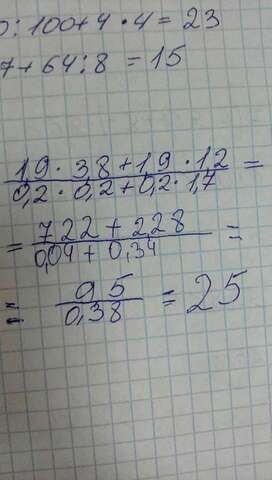 0:100+4·4=23
7+64:8=15
1,9·3,8+1,9·1,2 =
0,2·0,2+0,2·1,7
= 7,22+2,28 =
0,04+0,34
= 9,5 = 25
0,38